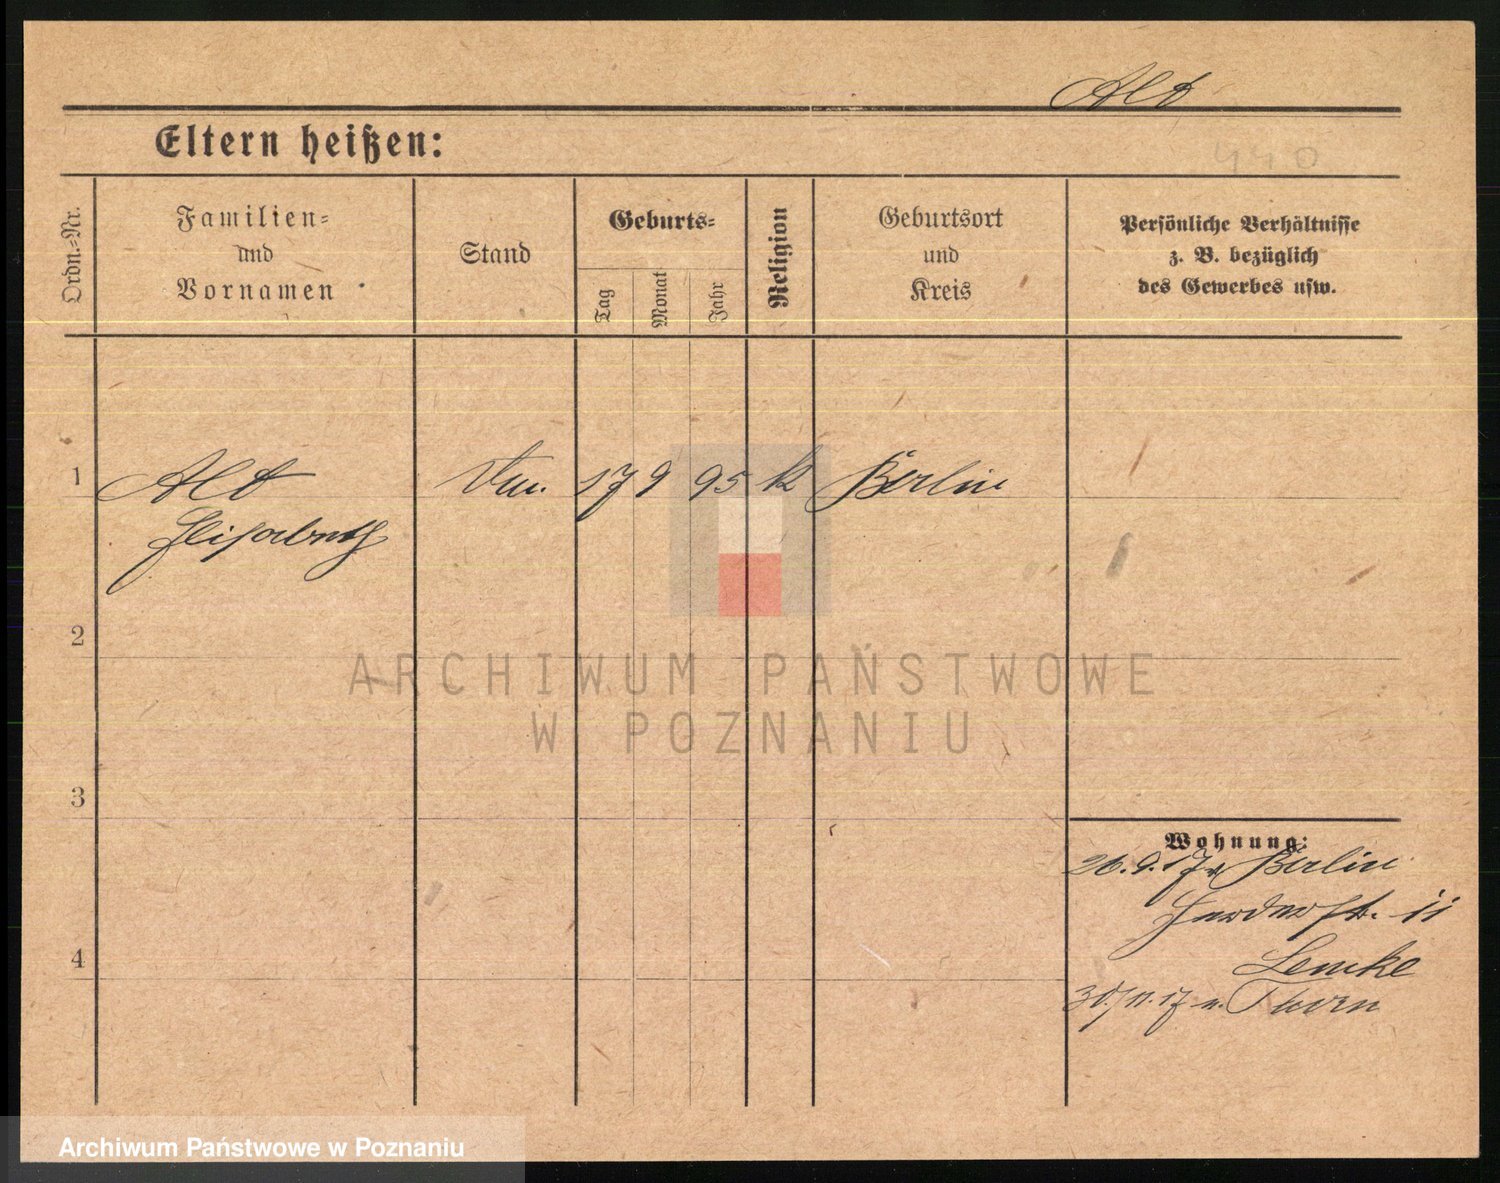 Alt
Eltern heißen:
440
Ordn.-Nr.
Familien-
und
Vornamen
Stand
Geburts-
Tag
Monat
Jahr
Religion
Geburtsort
und
Kreis
Persönliche Verhältnisse
z. B. bezüglich
des Gewerbes usw.
1
Alt
17 9 95 k Berlin
Elisabeth
2
ARCHIWUM PAŃSTWOWE
W POZNANIU
3
Wohnung:
26.9.17 v Berlin
11
Lemke
4
30/11.17 n. Thorn
Archiwum Państwowe w Poznaniu